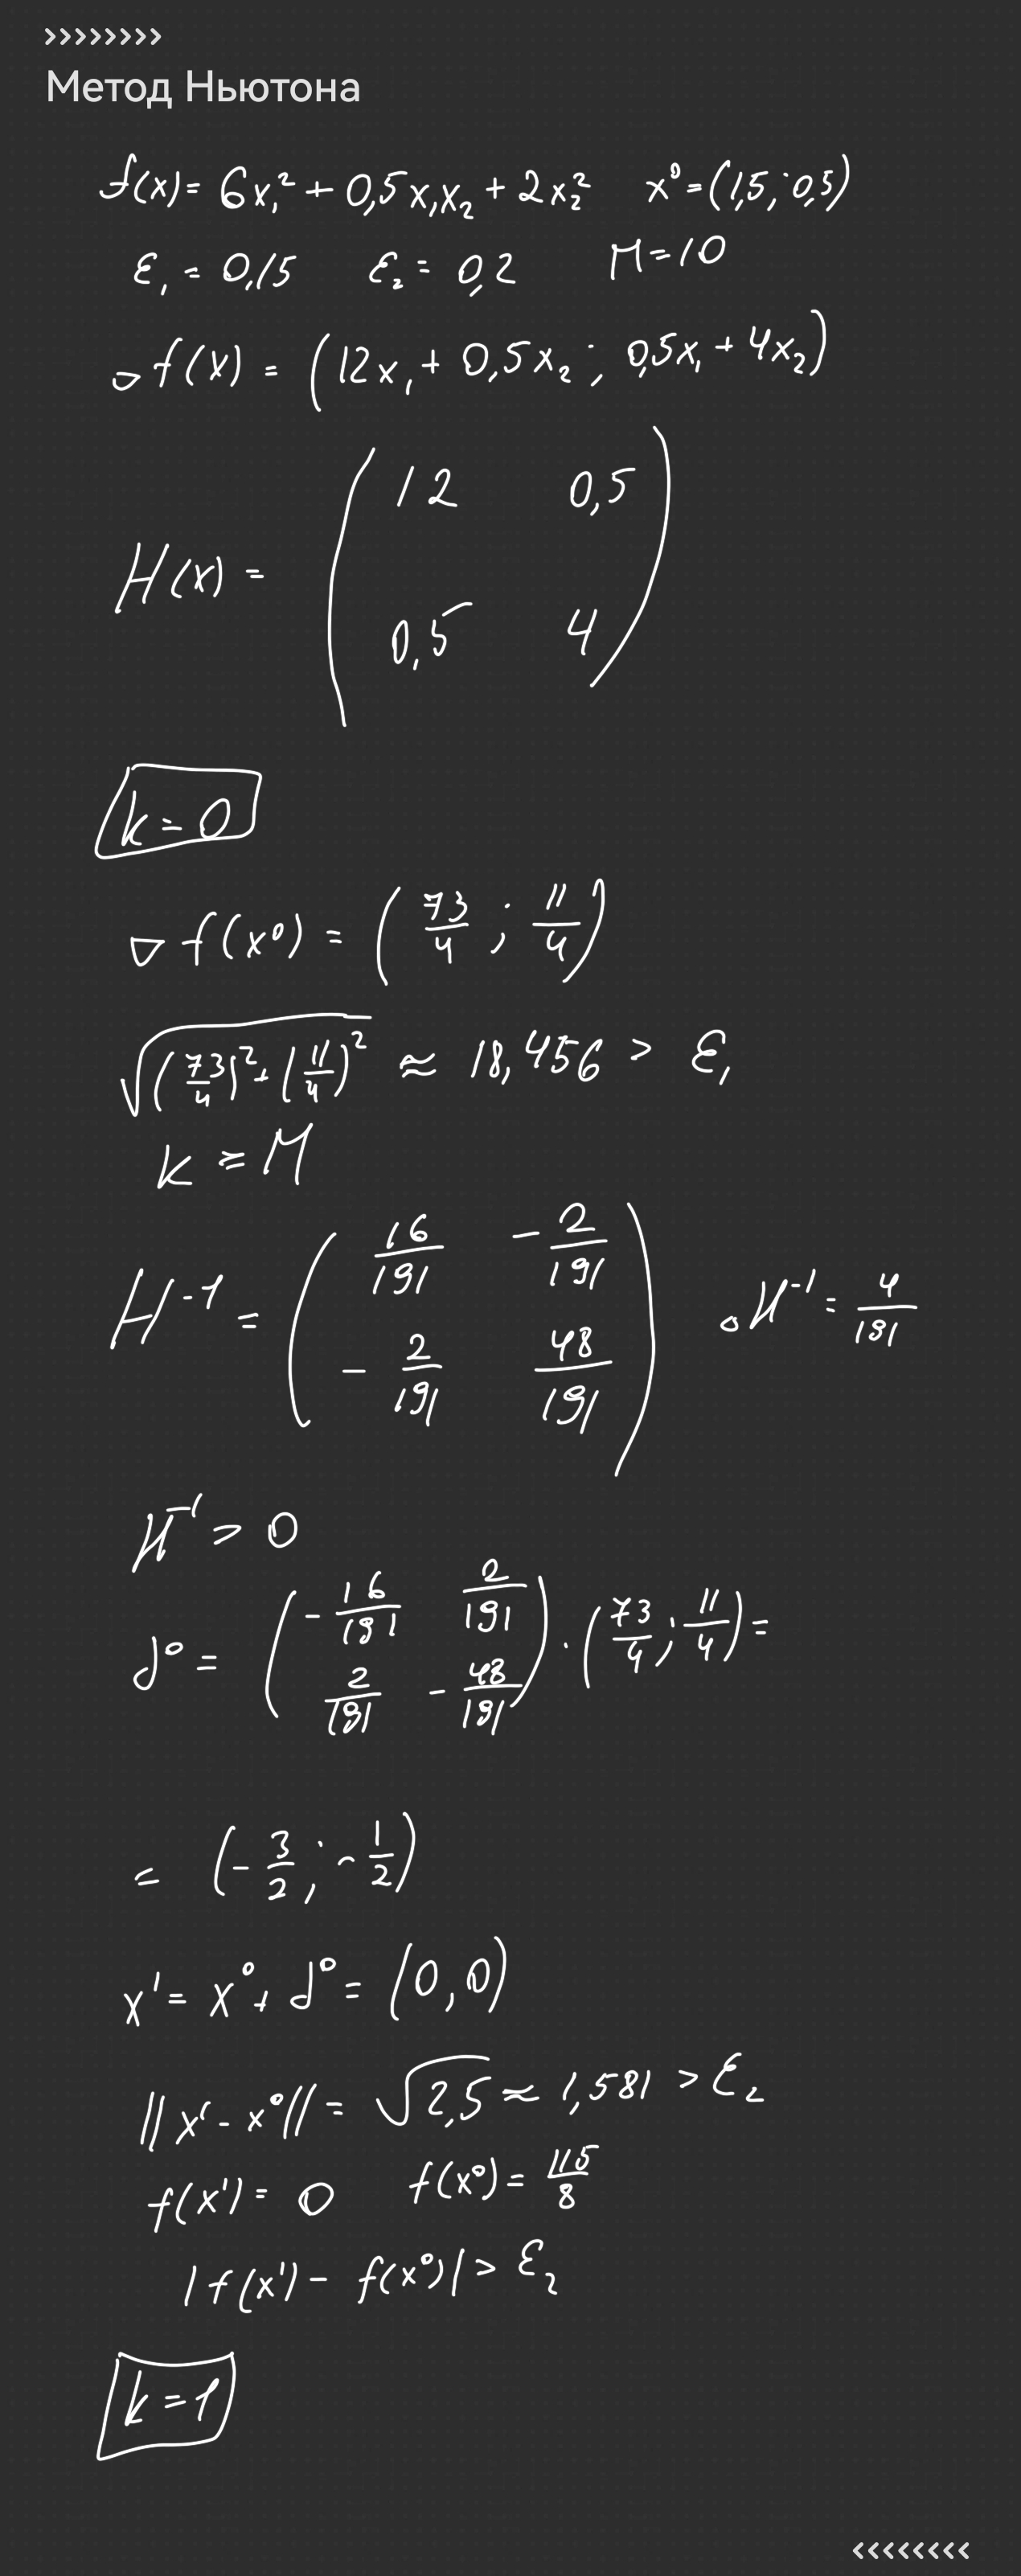 ››››››››
Метод Ньютона
f(x) = 6x₁² + 0,5x₁x₂ + 2x₂² x⁰ = (1,5; 0,5)
ε₁ = 0,15 ε₂ = 0,2 M = 10
▽f(x) = (12x₁ + 0,5x₂; 0,5x₁ + 4x₂)
12 0,5
H(x) =
0,5 4
k = 0
▽f(x⁰) = (73/4; 11/4)
√((73/4)² + (11/4)²) ≈ 18,456 > ε₁
k ≥ M
H⁻¹ = (16/191 -2/191
-2/191 48/191) △H⁻¹ = 4/191
H⁻¹ > 0
d⁰ = (-16/191 2/191
2/191 -48/191) · (73/4; 11/4) =
= (-3/2; -1/2)
x¹ = x⁰ + d⁰ = (0,0)
||x¹ - x⁰|| = √2,5 ≈ 1,581 > ε₂
f(x¹) = 0 f(x⁰) = 115/8
|f(x¹) - f(x⁰)| > ε₂
k = 1
‹‹‹‹‹‹‹‹